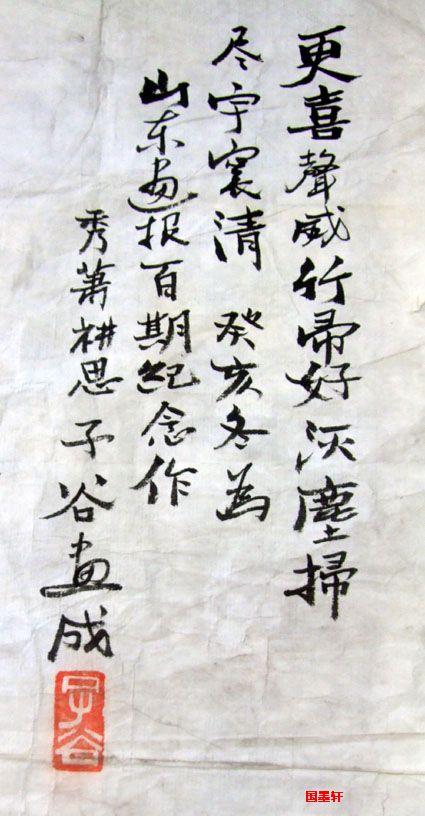 更喜聲威行帚好灰塵掃
尽宇寰清 癸亥冬為
山东画报百期纪念作
秀萧耕思子谷画成
子谷
国墨轩